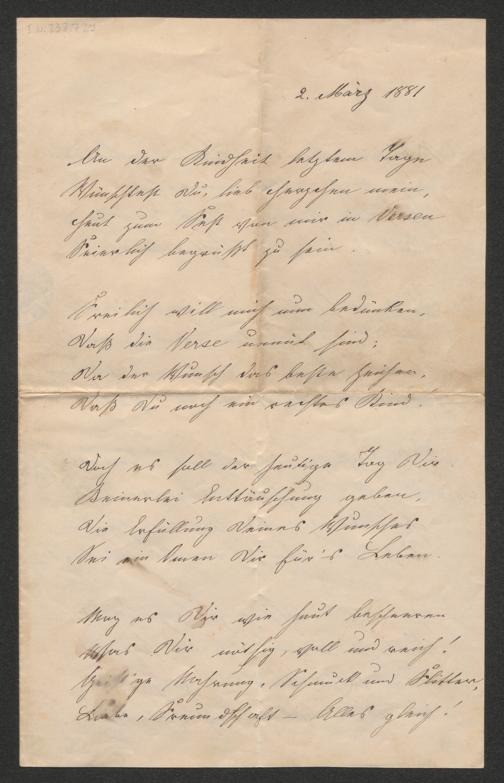 2. März 1881
An der Kindheit letztem Tage
Wünschtest Du, lieb Herzchen mein,
Heut zum Fest von mir in Versen
Feierlich begrüßt zu sein.
Freilich will mich nun bedünken,
Daß die Verse unnüt sind;
Da der Wunsch das beste Zeichen,
Daß Du noch ein rechtes Kind!
Doch es soll der heutige Tag Dir
Keinerlei Enttäuschung geben,
Die Erfüllung Deines Wunsches
Sei ein Omen Dir für's Leben.
Mag es Dir wie heut bescheeren
Was Dir nöthig, voll und reich!
Geistige Nahrung, Schmuck und Flitter,
Liebe, Freundschaft – Alles gleich!